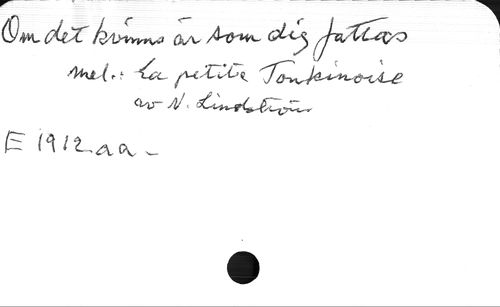 Om det kvinns är som dig fattas
mel.: La petite Tonkinoise
av N. Lindström
E 1912 aa -